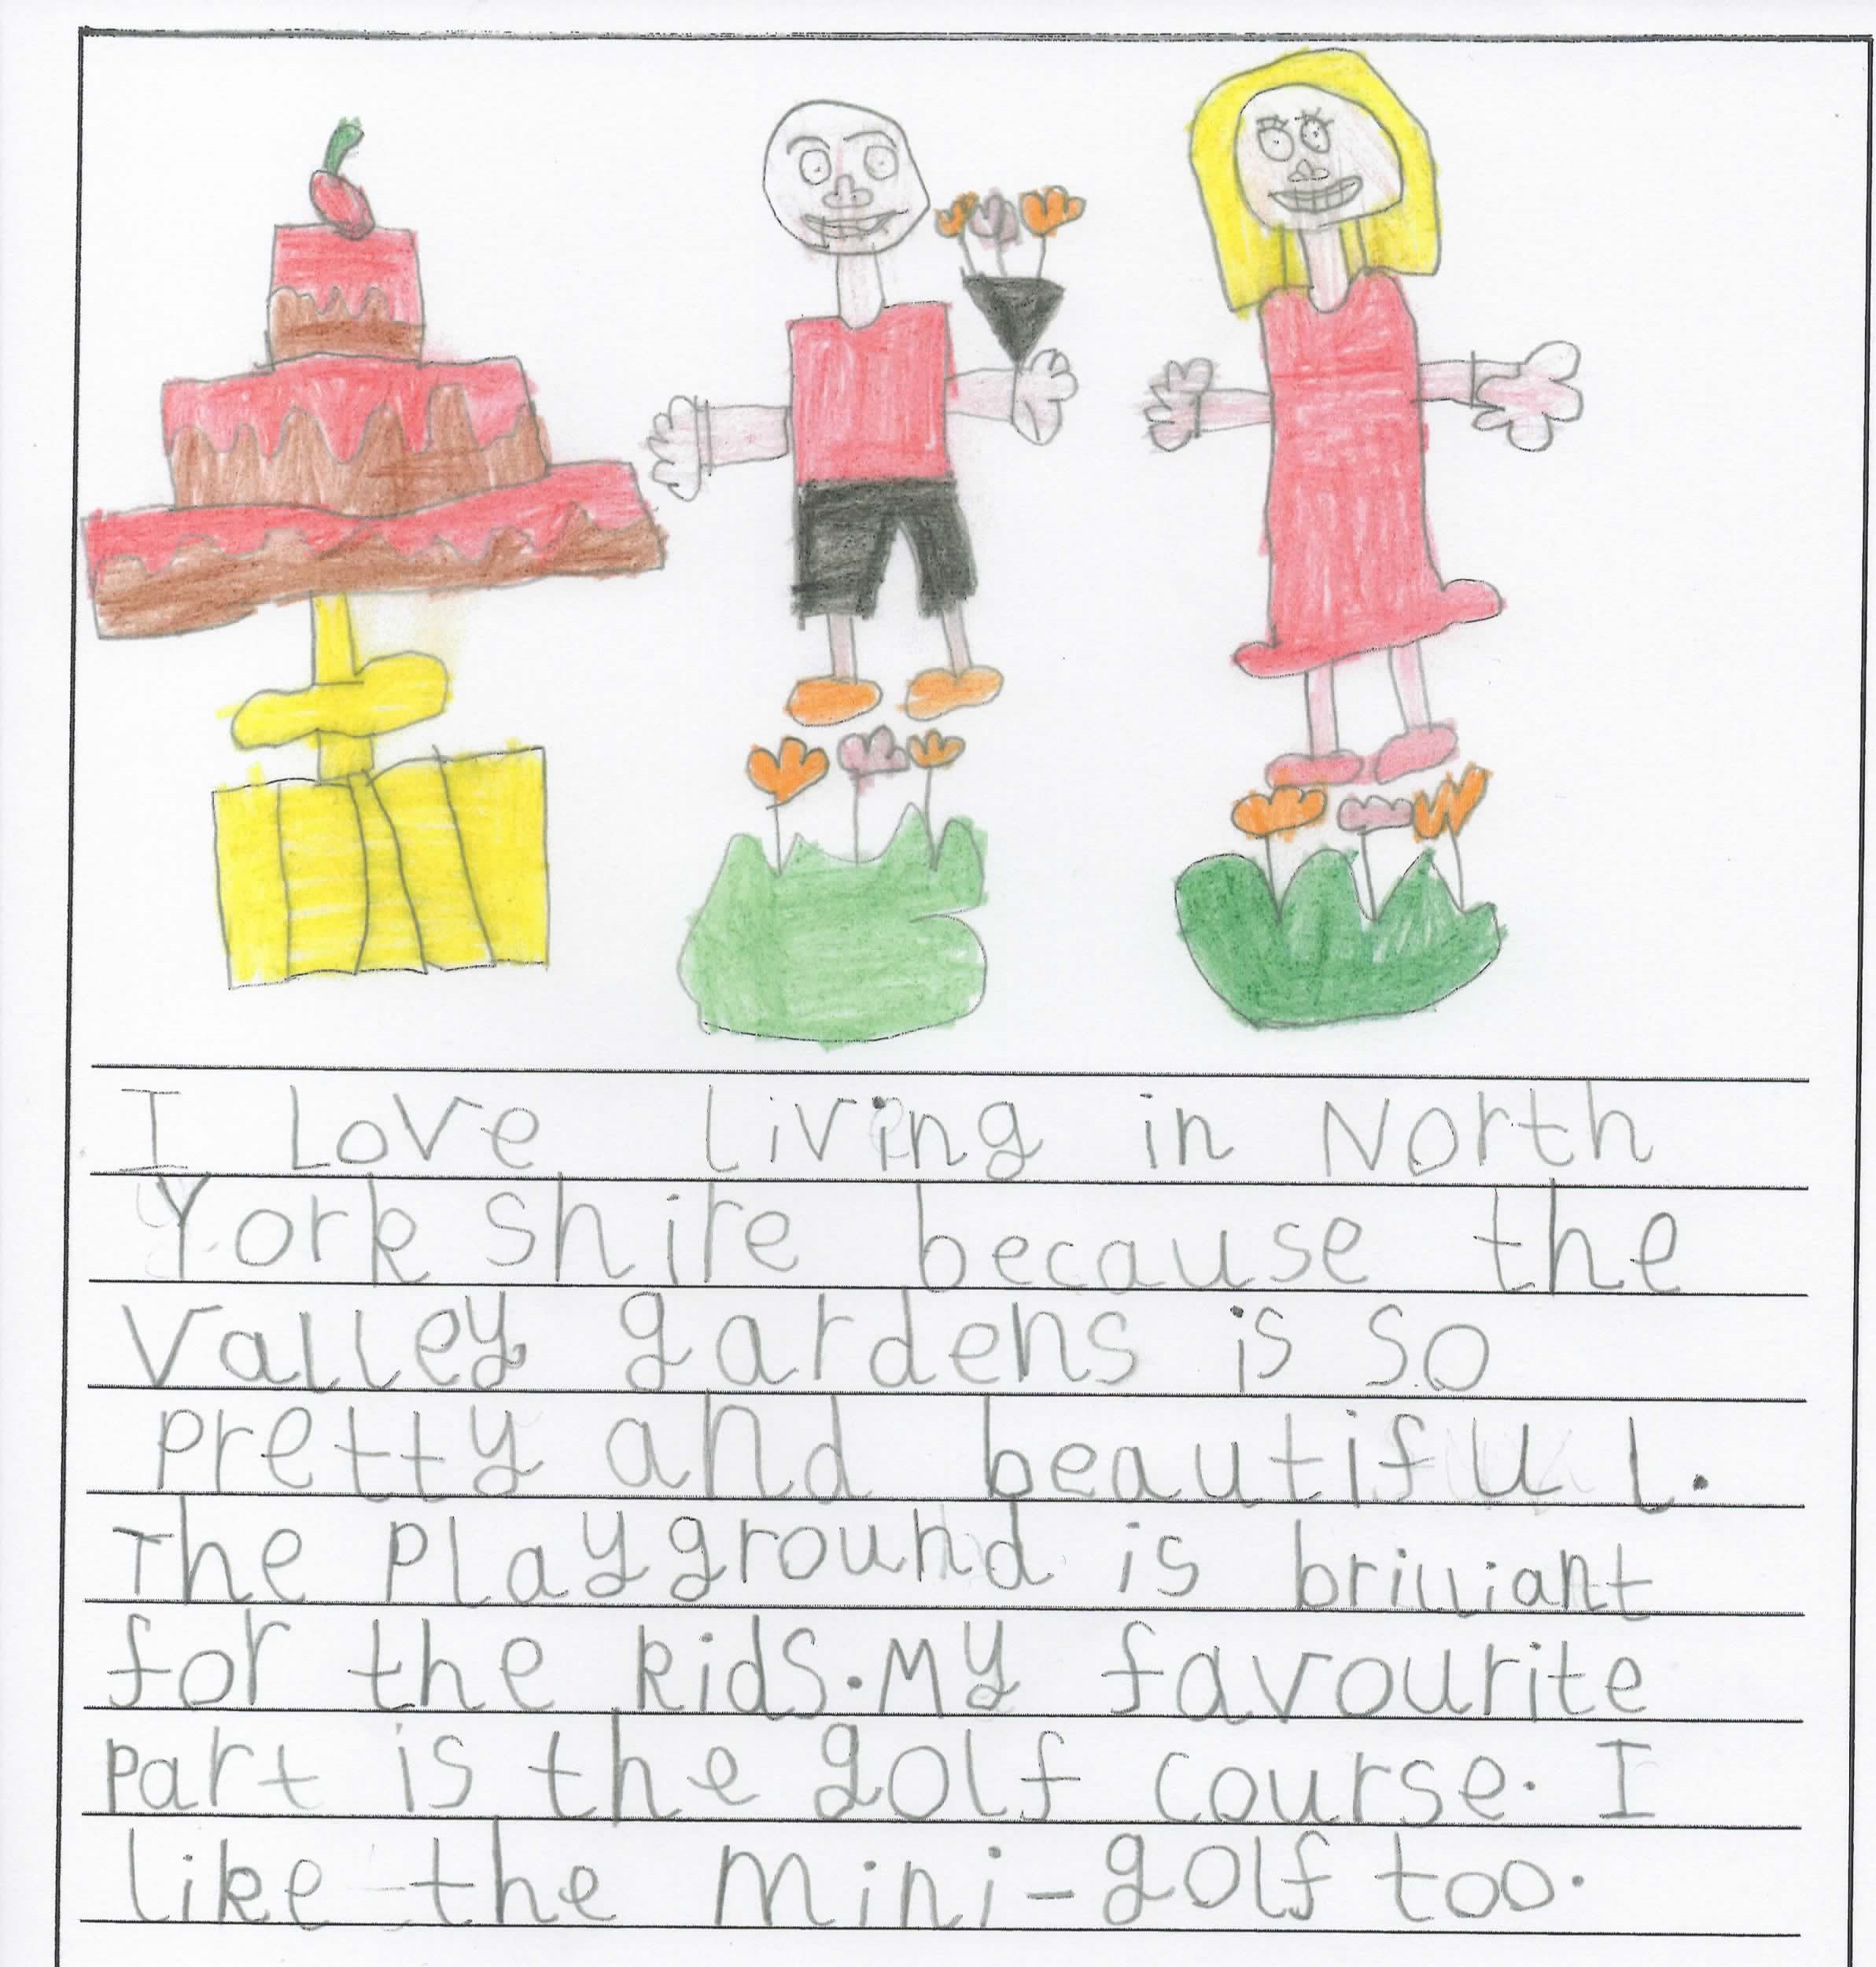 I Love living in North
York shire because the
Valley gardens is so
pretty and beautiful.
The playground is brilliant
for the kids. My favourite
part is the golf course. I
like the mini-golf too.